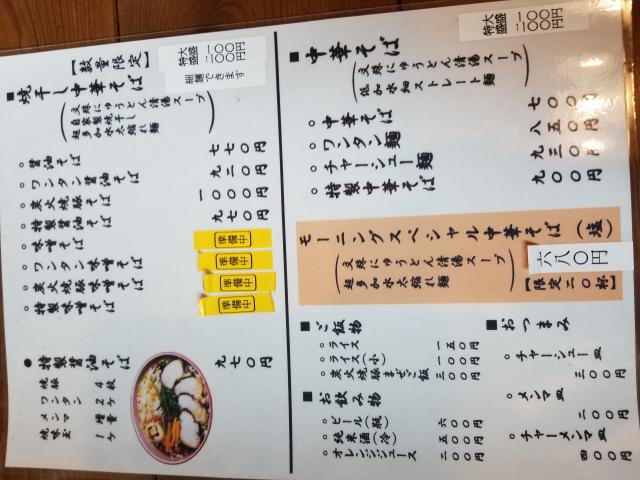 ■中華そば
大盛 一〇〇円
特盛 二〇〇円
(文殊にゅうとん清湯スープ
低加水細ストレート麺)
○中華そば 七〇〇円
○ワンタン麺 八五〇円
○チャーシュー麺 九三〇円
○特製中華そば 九〇〇円
モーニングスペシャル中華そば(塩)
(文殊にゅうとん清湯スープ
超多加水太縮れ麺)
六八〇円
【限定二〇杯】
■ご飯物
○ライス 一五〇円
○ライス(小) 一〇〇円
○炭火焼豚まぜご飯 三〇〇円
■お飲み物
○ビール(瓶) 六〇〇円
○純米酒(冷) 五〇〇円
○オレンジジュース 二〇〇円
■おつまみ
○チャーシュー皿 三〇〇円
○メンマ皿 二〇〇円
○チャーメンマ皿 四〇〇円
【数量限定】
■焼干し中華そば
大盛 一〇〇円
特盛 二〇〇円
細麺できます
(文殊にゅうとん清湯スープ
自家製焼干し
超多加水太縮れ麺)
○醤油そば 七七〇円
○ワンタン醤油そば 九二〇円
○炭火焼豚そば 一〇〇〇円
○特製醤油そば 九七〇円
○味噌そば 準備中
○ワンタン味噌そば 準備中
○炭火焼豚味噌そば 準備中
○特製味噌そば 準備中
●特製醤油そば 九七〇円
焼豚 4枚
ワンタン 2ヶ
メンマ 増量
焼味玉 1ヶ